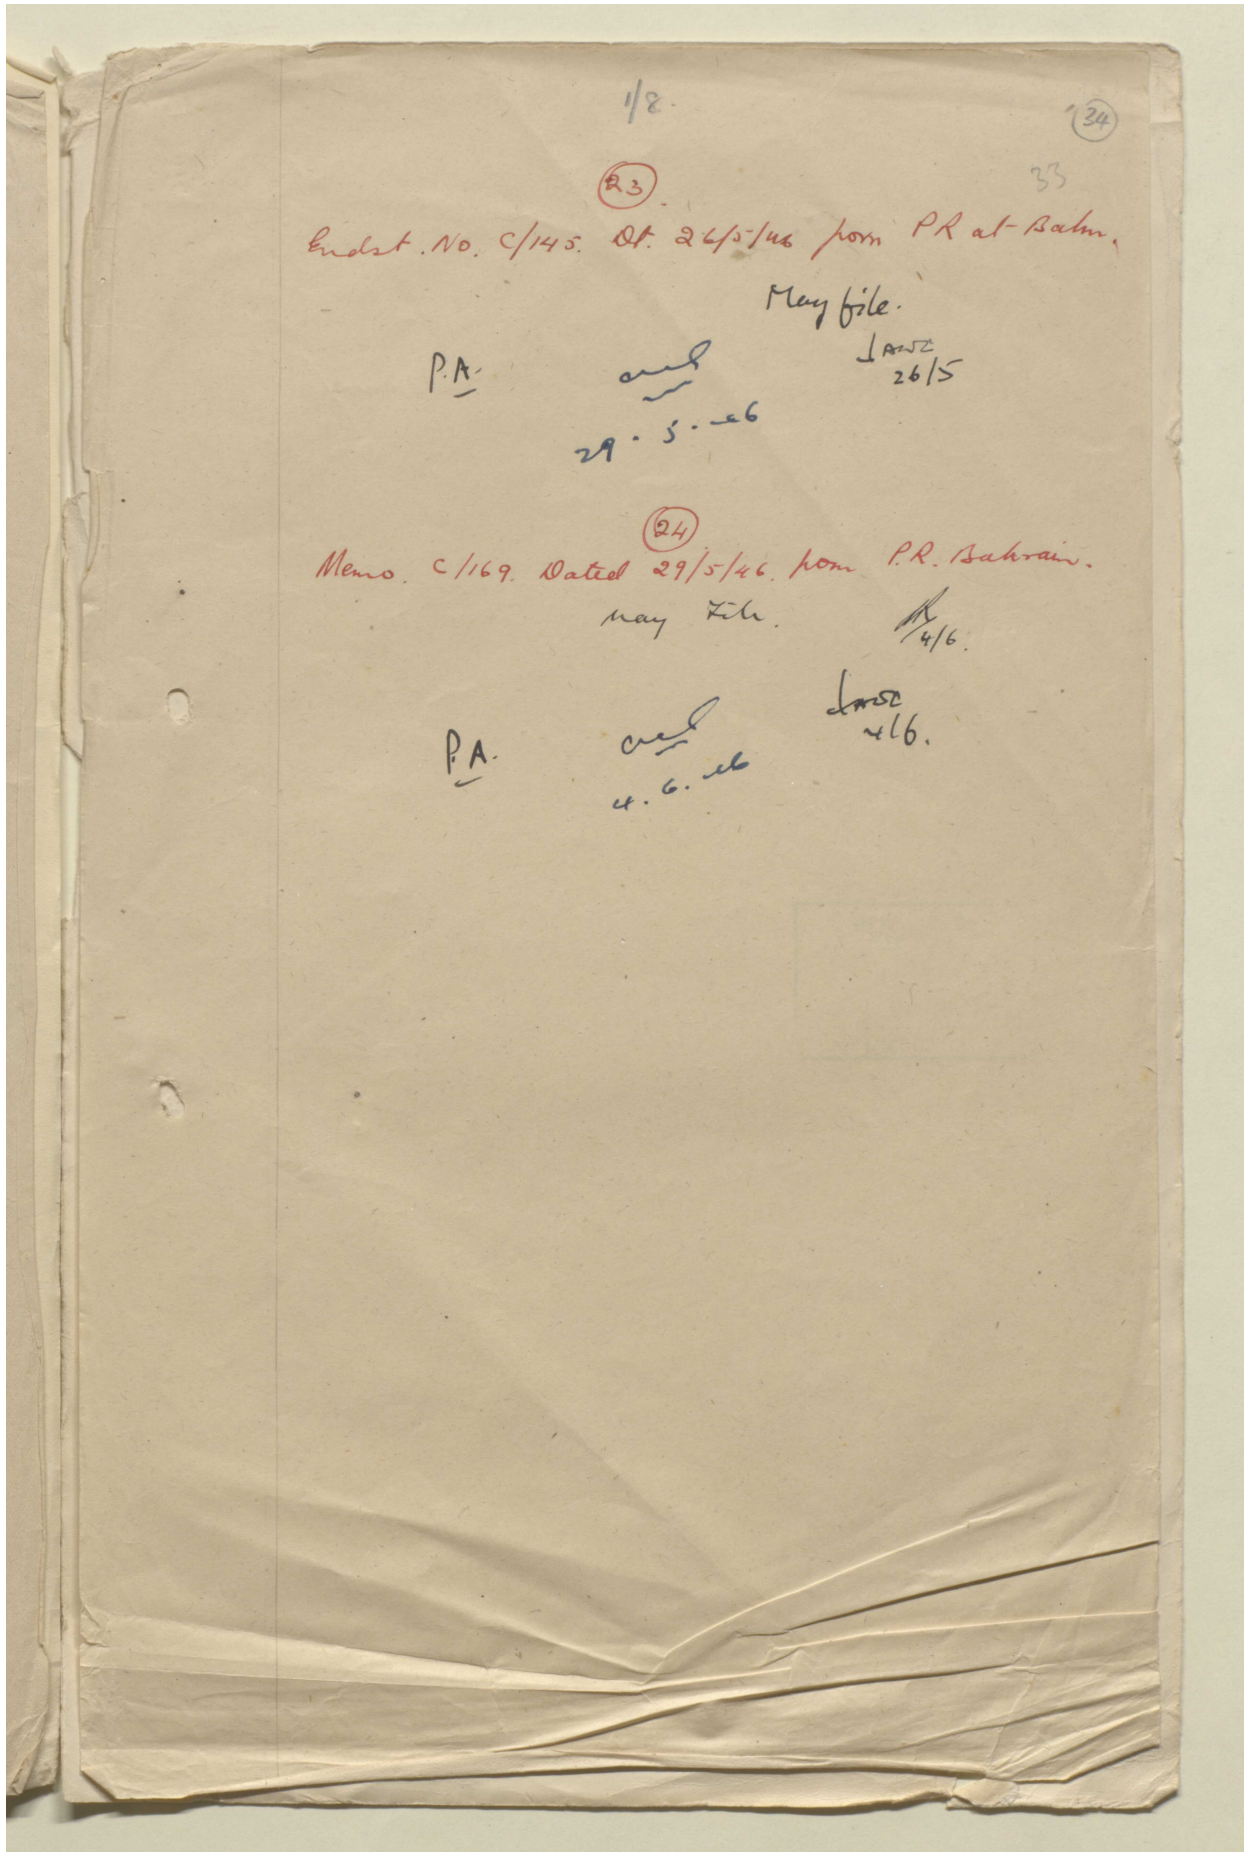 1/8.
34
33
23
Endst. No. C/145. Dt. 26/5/46 from PR at Bahrn.
May file.
P.A.
26/5
29.5.46
24
Memo. C/169. Dated 29/5/46. from P.R. Bahrain.
May File.
4/6.
P.A.
4/6.
4.6.46